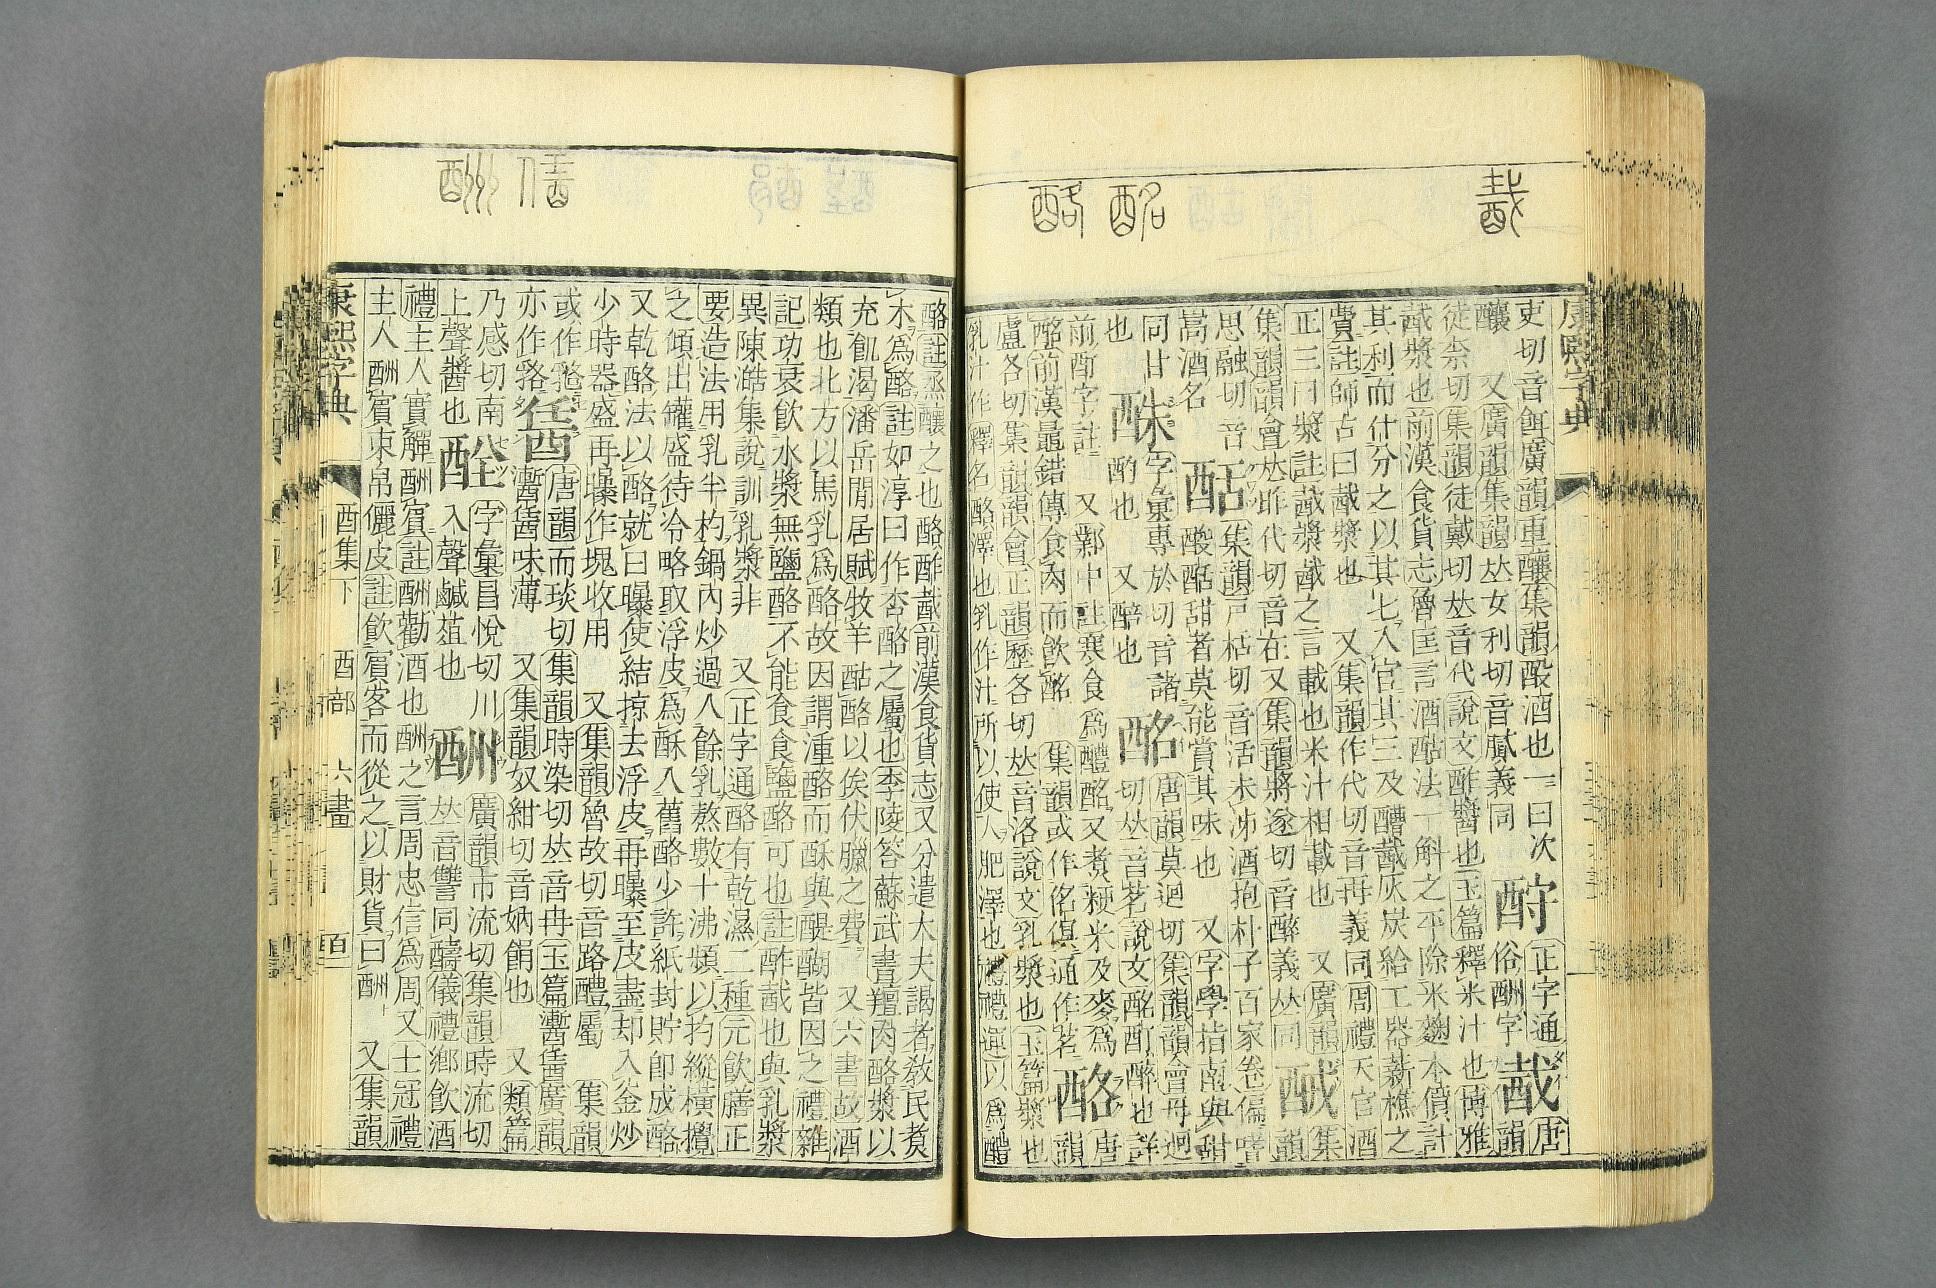 康熙字典
吏切音餌廣韻重釀集韻酘酒也一曰次 酧 正字通 酨 唐
釀 又廣韻集韻𠀤女利切音膩義同 俗酬字 韻
徒柰切集韻徒戴切𠀤音代說文酢醬也玉篇釋米汁也博雅
酨漿也前漢食貨志魯匡言酒酤法一斛之平除米麴本價計
其利而什分之以其七入官其三及醩酨灰炭給工器薪樵之
費註師古曰酨漿也 又集韻作代切音再義同周禮天官酒
正三曰漿註酨漿酨之言載也米汁相載也 又廣韻 集
集韻韻會𠀤昨代切音在又集韻將遂切音醉義𠀤同 韻
思融切音 䣶 集韻戸栝切音活未泲酒抱朴子百家卷偏嗜
嵩酒名 酸䣶甜者莫能賞其味也 又字學指南與甜
同甘 字彙專於切音諸 酩 唐韻莫迥切集韻韻會母迥
也 酌也 又醉也 切𠀤音茗說文酩酊醉也詳
前酊字註 又鄴中註寒食爲醴酩又煮粳米及麥爲 酪 唐
酩前漢鼂錯傳食肉而飮酩 集韻或作佲俱通作茗 韻
盧各切集韻韻會正韻歷各切𠀤音洛說文乳漿也玉篇漿也
乳汁作釋名酪澤也乳作汁所以使人肥澤也禮禮運以爲醴
酪註烝釀之也酪酢酨前漢食貨志又分遣大夫謁者敎民煮
木爲酪註如淳曰作杏酪之屬也李陵答蘇武書羶肉酪漿以
充飢渴潘岳閒居賦牧羊酤酪以俟伏臘之費 又六書故酒
類也北方以馬乳爲酪故因謂湩酪而酥與醍醐皆因之禮雜
記功衰飮水漿無鹽酪不能食食鹽酪可也註酢酨也與乳漿
異陳澔集說訓乳漿非 又正字通酪有乾濕二種元飮膳正
要造法用乳半杓鍋內炒過入餘乳熬數十沸頻以杓縱橫攪
之傾出罐盛待冷略取浮皮爲酥入舊酪少許紙封貯卽成酪
又乾酪法以酪就日曝使結掠去浮皮再曝至皮盡却入釜炒
少時器盛再曝作塊收用 又集韻魯故切音路醴屬 集韻
或作 唐韻而琰切集韻時染切𠀤音冉玉篇 廣韻
亦作 味薄 又集韻奴紺切音妠 也 又類篇
乃感切南 字彙昌悅切川 酬 廣韻市流切集韻時流切
上聲醬也 入聲鹹葅也 𠀤音讐同醻儀禮鄕飮酒
禮主人實觶酬賓註酬勸酒也酬之言周忠信爲周又士冠禮
主人酬賓束帛儷皮註飮賓客而從之以財貨曰酬 又集韻
康熙字典 酉集下 酉部 六畫